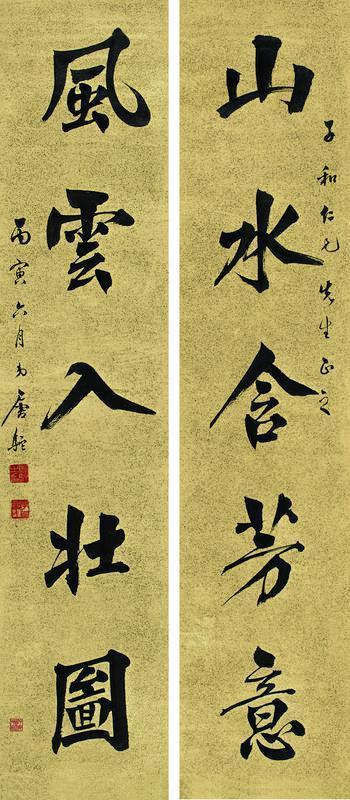 山水含芳意
子和仁兄先生正之
風雲入壯圖
丙寅六月